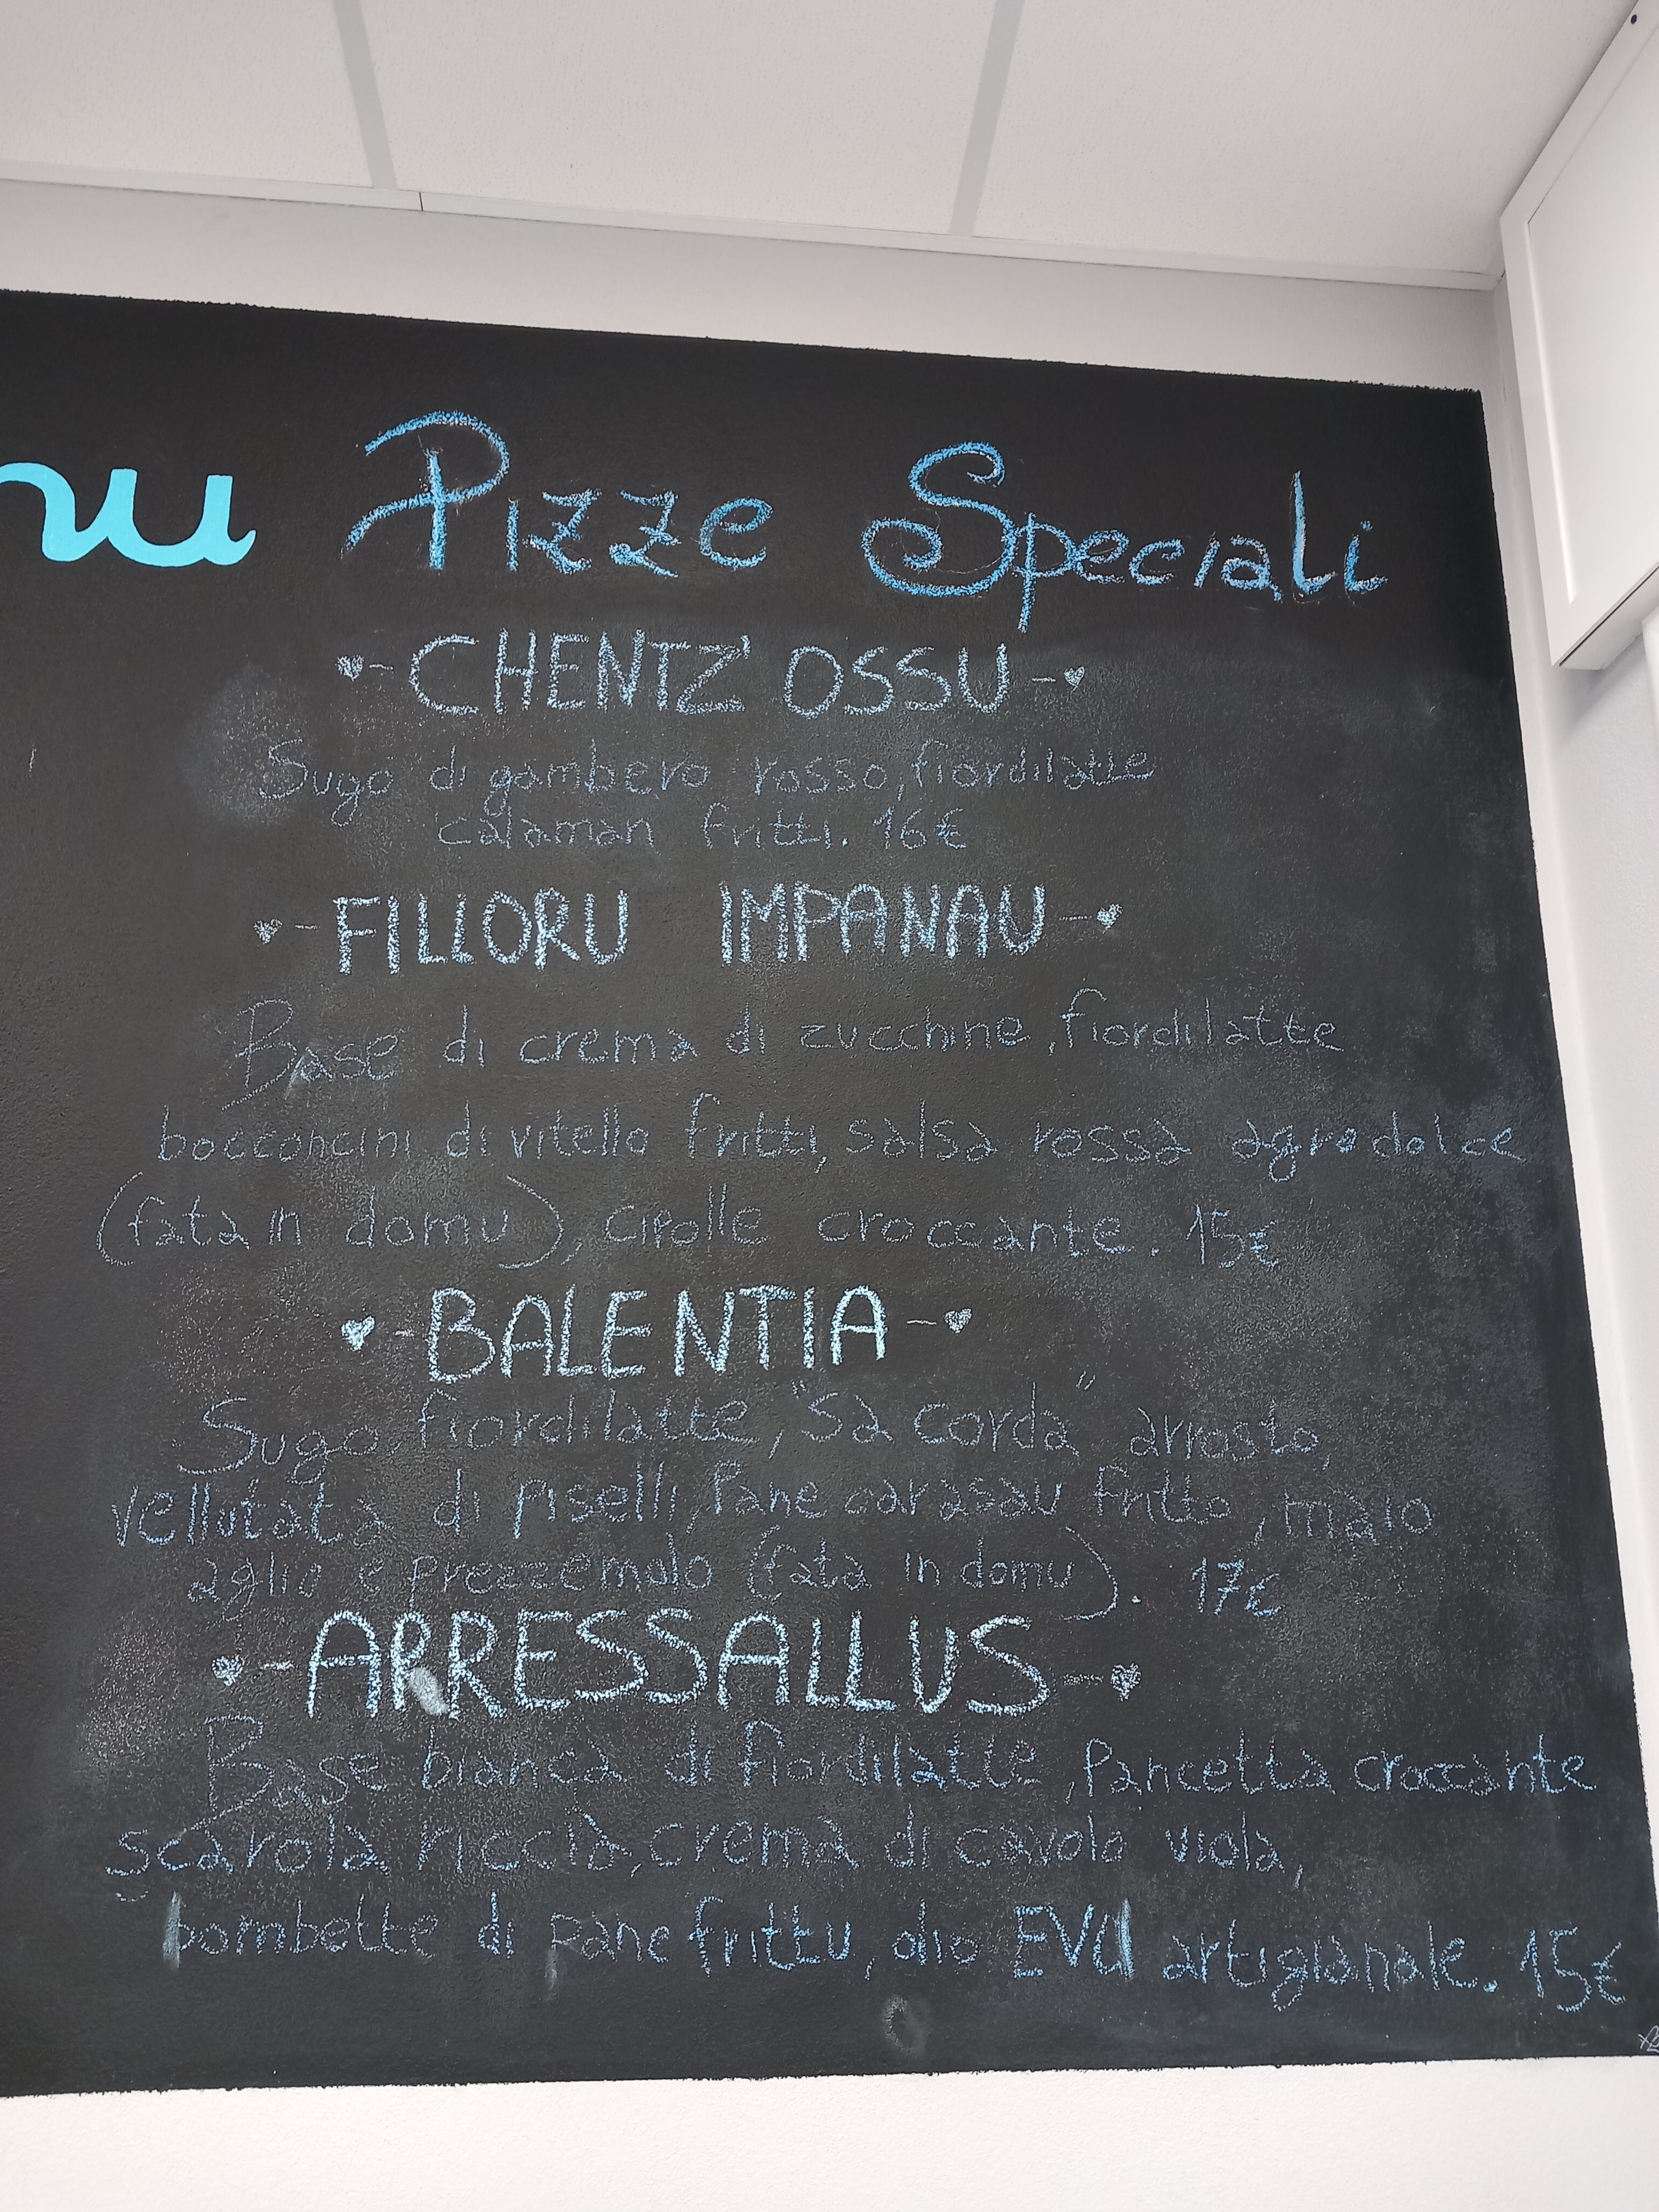 nu Pizze Speciali
CHENTZ' OSSU
Sugo di gambero rosso, fiordilatte
calamari fritti. 16€
FILLORU IMPANAU
Base di crema di zucchine, fiordilatte
bocconcini di vitello fritti, salsa rossa agrodolce
(fata in domu), cipolle croccante. 15€
BALENTIA
Sugo, fiordilatte, "Sa corda" arrosto,
vellutata di piselli, Pane carasau fritto, maio
aglio e prezzemolo (fata in domu). 17€
ARRESSALLUS
Base bianca di fiordilatte, Pancetta croccante
scarola riccia, crema di cavolo viola,
bombette di pane frittu, olio EVU artigianale. 15€